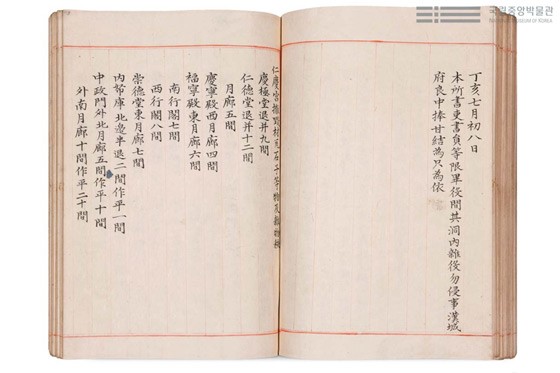 국립중앙박물관
NATIONAL MUSEUM OF KOREA
丁亥七月初八日
本所書吏書員等限畢役間其洞內雜役勿侵事漢城
府良中捧甘結為只為依
仁慶宮
慶極堂退并九間
仁德堂退并十二間
月廊五間
慶寧殿西月廊四間
福寧殿東月廊六間
南行閣七間
西行閣八間
崇德堂東月廊七間
內帑庫北邊半退二間作平一間
中政門外北月廊五間作平十間
外南月廊十間作平二十間